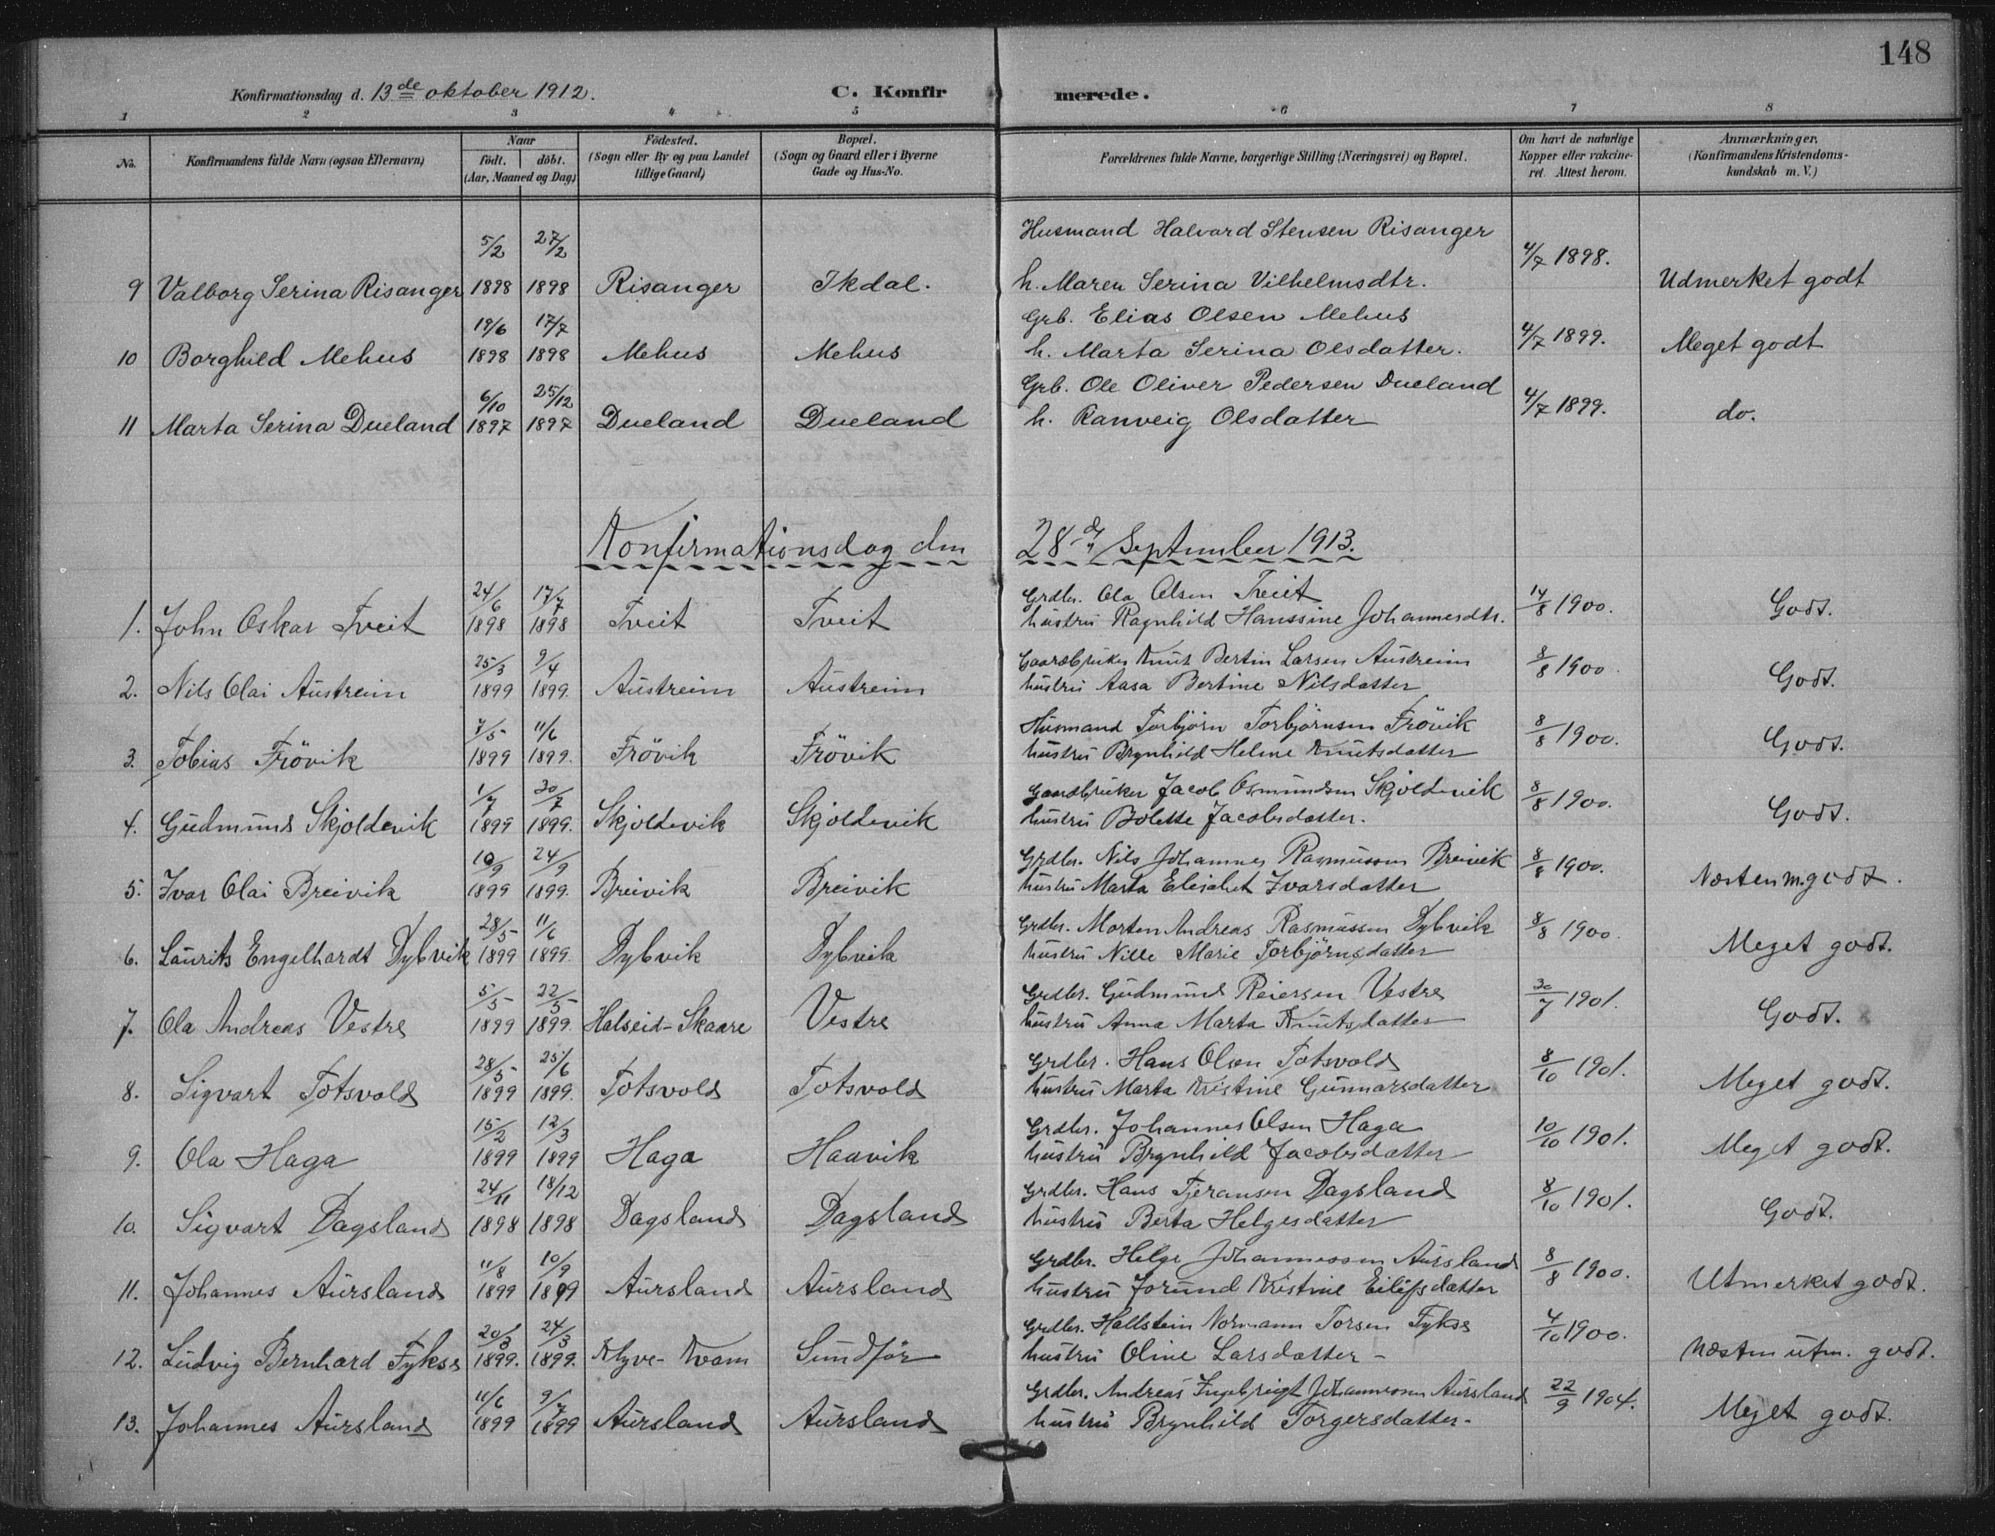 148
Konfirmationsdag d. 13de oktober 1912. C. Konfir merede.
1 2 3 4 5 6 7 8
No. Konfirmandens fulde Navn (ogsaa Efternavn) Naar født. døbt. (Aar, Maaned og Dag) Fødested. (Sogn eller By og paa Landet tillige Gaard) Bopæl. (Sogn og Gaard eller i Byerne Gade og Hus-No. Forældrenes fulde Navne, borgerlige Stilling (Næringsvei) og Bopæl. Om havt de naturlige Kopper eller vakcineret. Attest herom. Anmærkninger. (Konfirmandens Kristendomskundskab m. V.)
5/2 27/2 Husmand Halvard Stensen Risanger
9 Valborg Serina Risanger 1898 1898 Risanger Ikdal. h. Maren Serina Vilhelmsdtr. 4/7 1898. Udmerket godt
19/6 17/7 Grb. Elias Olsen Mehus
10 Borghild Mehus 1898 1898 Mehus Mehus h. Marta Serina Olsdatter. 4/7 1899. Meget godt
6/10 25/12 Grb. Ole Oliver Pedersen Dueland
11 Marta Serina Dueland 1897 1897 Dueland Dueland h. Ranveig Olsdatter 4/7 1899. do.
Konfirmationsdag den 28de September 1913.
24/6 17/7 Grdbr. Ola Olsen Tveit
1. John Oskar Tveit 1898 1898 Tveit Tveit hustru Ragnhild Hanssine Johannesdtr. 14/8 1900. Godt.
25/3 9/4 Gaardbruker Knut Bertin Larsen Austreim
2. Nils Olai Austreim 1899 1899. Austreim Austreim hustru Aasa Bertine Nilsdatter 8/8 1900. Godt.
7/5 11/6 Husmand Torbjörn Torbjörnsen Frövik
3. Tobias Frövik 1899 1899. Frövik Frövik hustru Brynhild Helene Knutsdatter 8/8 1900. Godt.
1/7 30/7 Gaardbruker Jacob Osmundsen Skjoldevik
4. Gudmund Skjoldevik 1899 1899. Skjoldevik Skjoldevik hustru Bolette Jacobsdatter. 8/8 1900. Godt.
10/9 24/9 Grdbr. Nils Johannes Rasmussen Breivik
5. Ivar Olai Breivik 1899 1899. Breivik Breivik hustru Marta Elisabet Ivarsdatter 8/8 1900. Næsten m. godt.
28/5 11/6 Grdbr. Morten Andreas Rasmussen Dybvik
6. Laurits Engelhardt Dybvik 1899 1899. Dybvik Dybvik hustru Nille Marie Torbjörnsdatter 8/8 1900. Meget godt.
5/5 22/5 Grdbr. Gudmund Reiersen Vestre
7. Ola Andreas Vestre 1899 1899. Halseid-Skaare Vestre hustru Anna Marta Knutsdatter 30/7 1901. Godt.
28/5 25/6 Grdbr. Hans Olsen Totsvold
8. Sigvart Totsvold 1899 1899. Totsvold Totsvold hustru Marta Kristine Gunnarsdatter 8/10 1901. Meget godt.
15/2 12/3 Grdbr. Johannes Olsen Haga
9. Ola Haga 1899 1899 Haga Haavik hustru Brynhild Jacobsdatter 10/10 1901. Meget godt.
24/11 18/12 Grdbr. Hans Tjeransen Dagsland
10. Sigvart Dagsland 1898 1898 Dagsland Dagsland hustru Berta Helgesdatter 8/10 1901. Godt.
11/8 10/9 Grdbr. Helge Johannessen Aursland
11. Johannes Aursland 1899 1899 Aursland Aursland hustru Jorund Kristine Eilifsdatter 8/8 1900. Utmerket godt.
20/3 24/3 Grdbr. Hallstein Normann Torsen Fykse
12. Ludvig Bernhard Fykse 1899. 1899. Klyve-Kvam Sundför hustru Oline Larsdatter - 4/10 1900. Næsten utm. godt.
11/6 9/7 Grdbr. Andreas Ingebrigt Johannessen Aursland
13. Johannes Aursland 1899 1899 Aursland Aursland hustru Brynhild Torgersdatter- 22/9 1904. Meget godt.